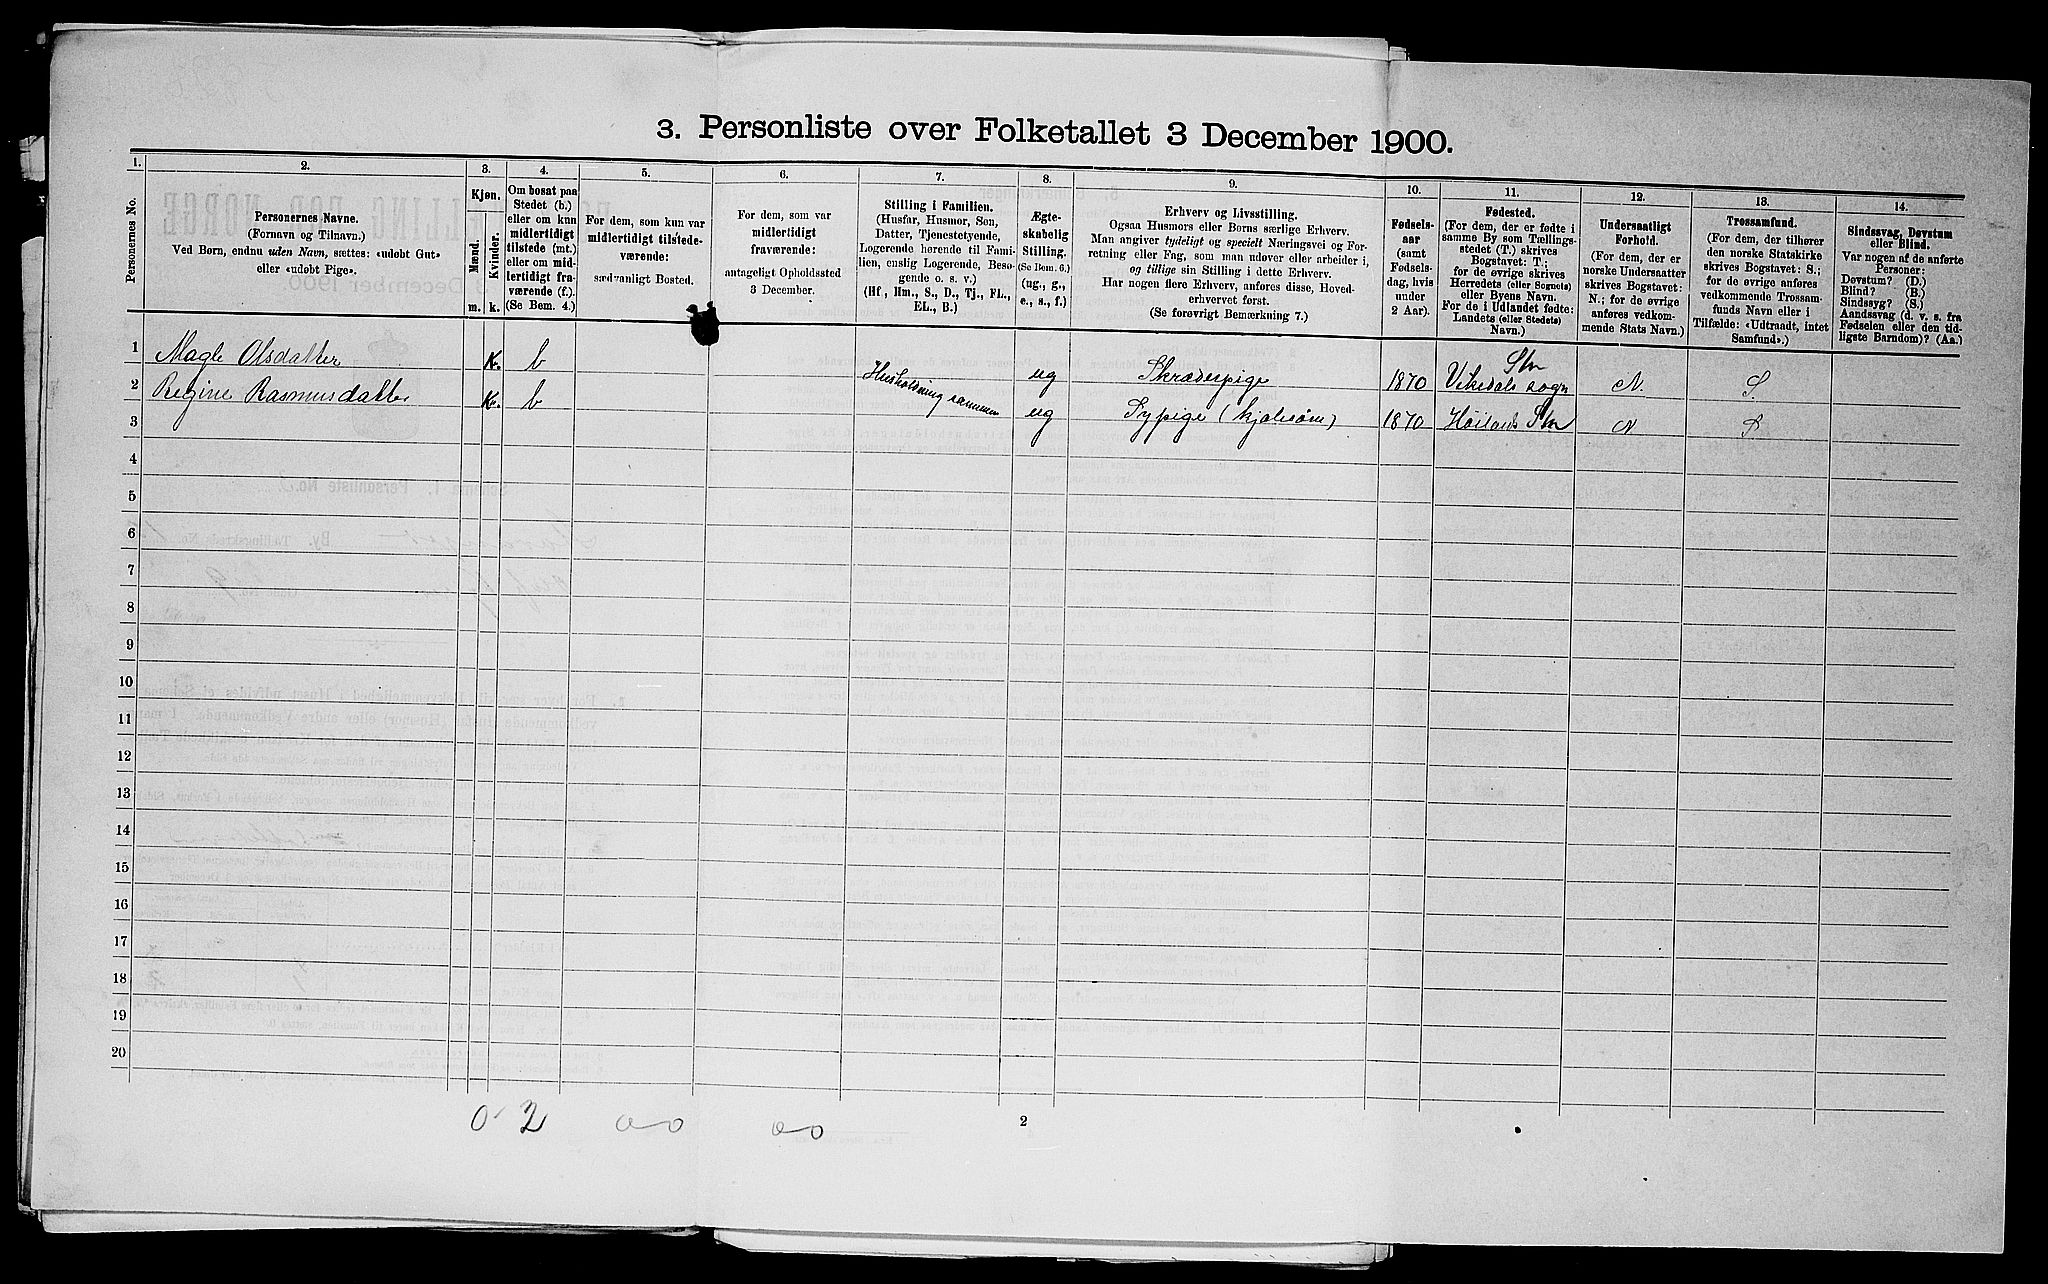 3. Personliste over Folketallet 3 December 1900.
1.
2.
3.
4.
5.
6.
7.
8.
9.
10.
11.
12.
13.
14.
Personernes No.
Personernes Navne.
(Fornavn og Tilnavn.)
Ved Børn, endnu uden Navn, sættes: «udøbt Gut»
eller «udøbt Pige».
Kjøn.
Mænd.
Kvinder.
m.
k.
Om bosat paa
Stedet (b.)
eller om kun
midlertidigt
tilstede (mt.)
eller om mid-
lertidigt fra-
værende (f.).
(Se Bem. 4.)
For dem, som kun var
midlertidigt tilstede-
værende:
sædvanligt Bosted.
For dem, som var
midlertidigt
fraværende:
antageligt Opholdssted
3 December.
Stilling i Familien.
(Husfar, Husmor, Søn,
Datter, Tjenestetyende,
Logerende hørende til Fami-
lien, enslig Logerende, Besø-
gende o. s. v.)
(Hf., Hm., S., D., Tj., FL.,
EL., B.)
Ægte-
skabelig
Stilling.
(Se Bem. 6.)
(ug., g.,
e., s., f.)
Erhverv og Livsstilling.
Ogsaa Husmors eller Børns særlige Erhverv.
Man angiver tydeligt og specielt Næringsvei og For-
retning eller Fag, som man udøver eller arbeider i,
og tillige sin Stilling i dette Erhverv.
Har nogen flere Erhverv, anføres disse, Hoved-
erhvervet først.
(Se forøvrigt Bemærkning 7.)
Fødsels-
aar
(samt
Fødsels-
dag, hvis
under
2 Aar).
Fødested.
(For dem, der er fødte i
samme By som Tællings-
stedet (T.) skrives
Bogstavet: T.;
for de øvrige skrives
Herredets (eller Sognets)
eller Byens Navn.
For de i Udlandet fødte:
Landets (eller Stedets)
Navn.)
Undersaatligt
Forhold.
(For dem, der er
norske Undersaatter
skrives Bogstavet:
N.; for de øvrige
anføres vedkom-
mende Stats Navn.)
Trossamfund.
(For dem, der tilhører
den norske Statskirke
skrives Bogstavet: S.;
for de øvrige anføres
vedkommende Trossam-
funds Navn eller i
Tilfælde: «Udtraadt, intet
Samfund».)
Sindssvag, Døvstum
eller Blind.
Var nogen af de anførte
Personer:
Døvstum? (D.)
Blind? (B.)
Sindssyg? (S.)
Aandssvag (d. v. s. fra
Fødselen eller den tid-
ligste Barndom)? (Aa.)
1 Magle Olsdatter K. b ug Skræderpige 1870 Stv Vikedals sogn N. S.
2 Regine Rasmusdatter K. b Husholdning sammen ug Sypige (kjolesøm) 1870 Høilands Stv N S
3
4
5
6
7
8
9
10
11
12
13
14
15
16
17
18
19
20
0 2 00 00
2